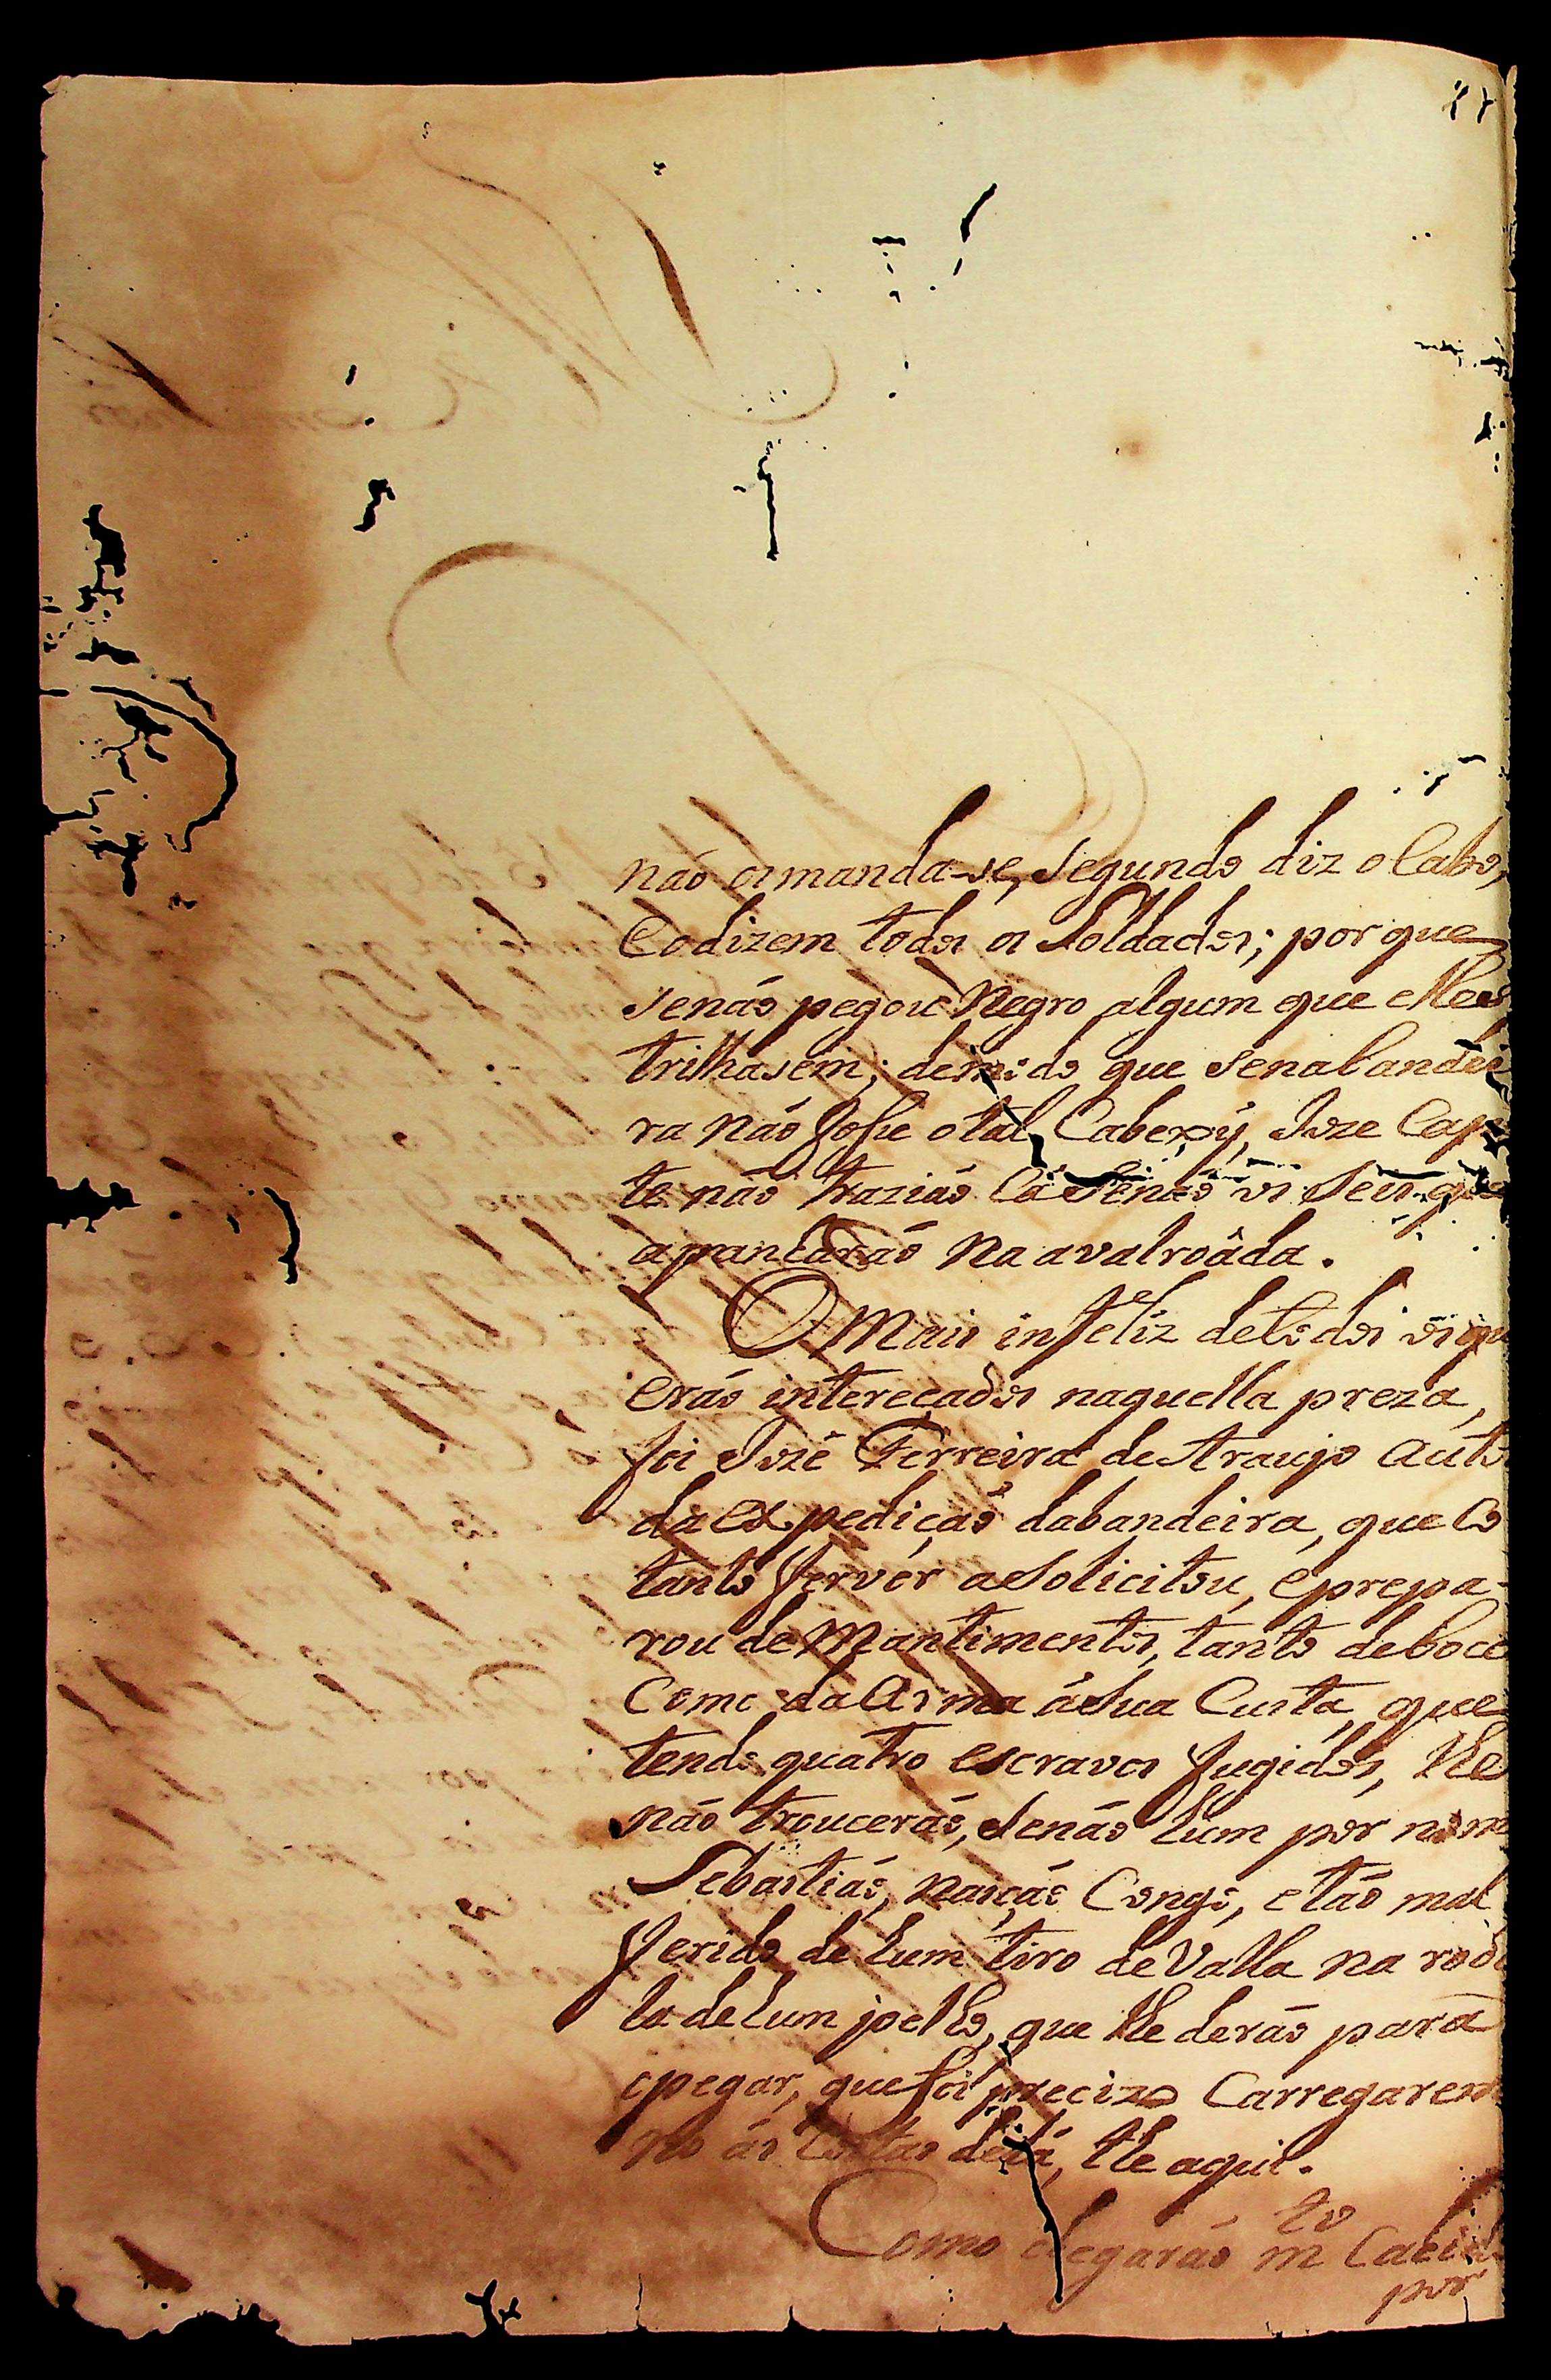 não os manda-se, segundo diz o Cabo,
e o dizem todos os Soldados; por que
senão pegou Negro algum que elles
trilhasem; demodo que senabandei
ra não fosse otal Cabexy, Joze
te não trazião cá senão os seis que
apanharão na avalroâda.
O Mais infeliz detodos os que
erão intereçados naquella preza,
foi José Ferreira de Araujo auto
da expedição dabandeira, que Co
tanto fervor a Solicitou, e prepa-
rou de Mantimentos, tanto deboca
Como da Arma á Sua Custa, que
tendo quatro escravos fugidos, lhe
não troucerão, senão hum por nome
Sebastião, nasção Congo, e tão mal
ferido de hum tiro de Valla na rode
la de hum joelho, que lhe derão para
opegar, que foi precizo Carregarem
no ás Costas delá, the aqui.
Como chegarão m.to
por